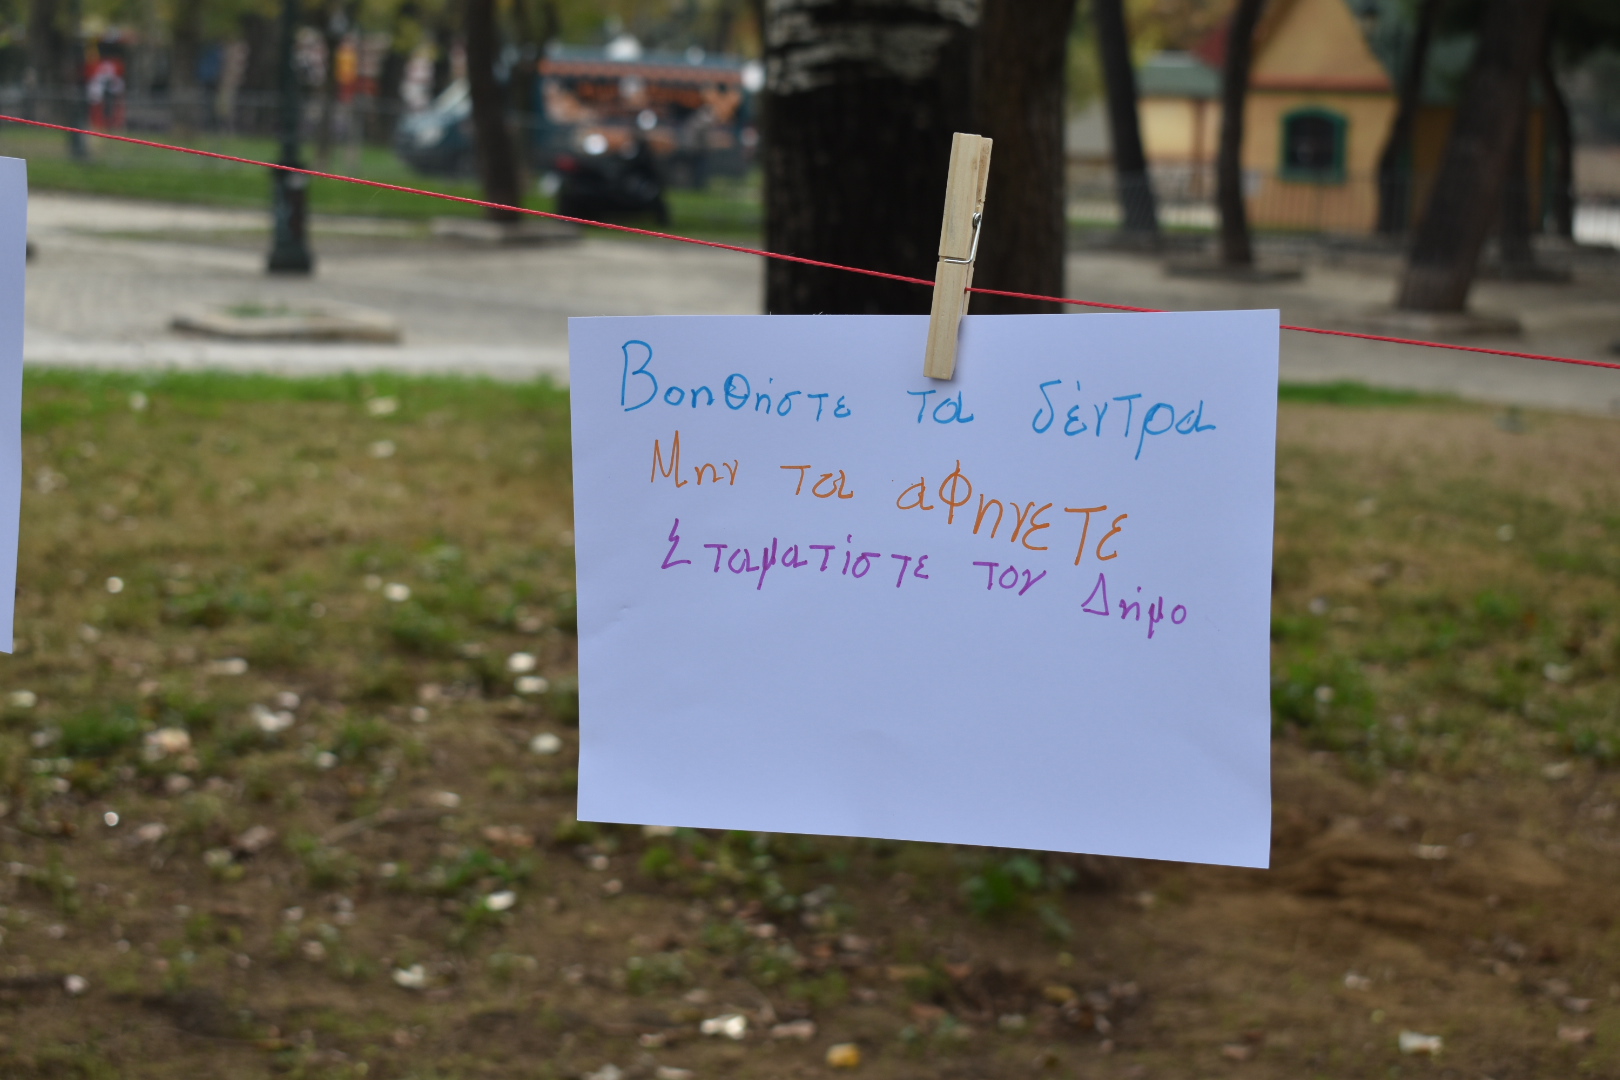 Βοηθήστε τα δέντρα
Μην τα αφηνετε
Σταματίστε τον Δήμο